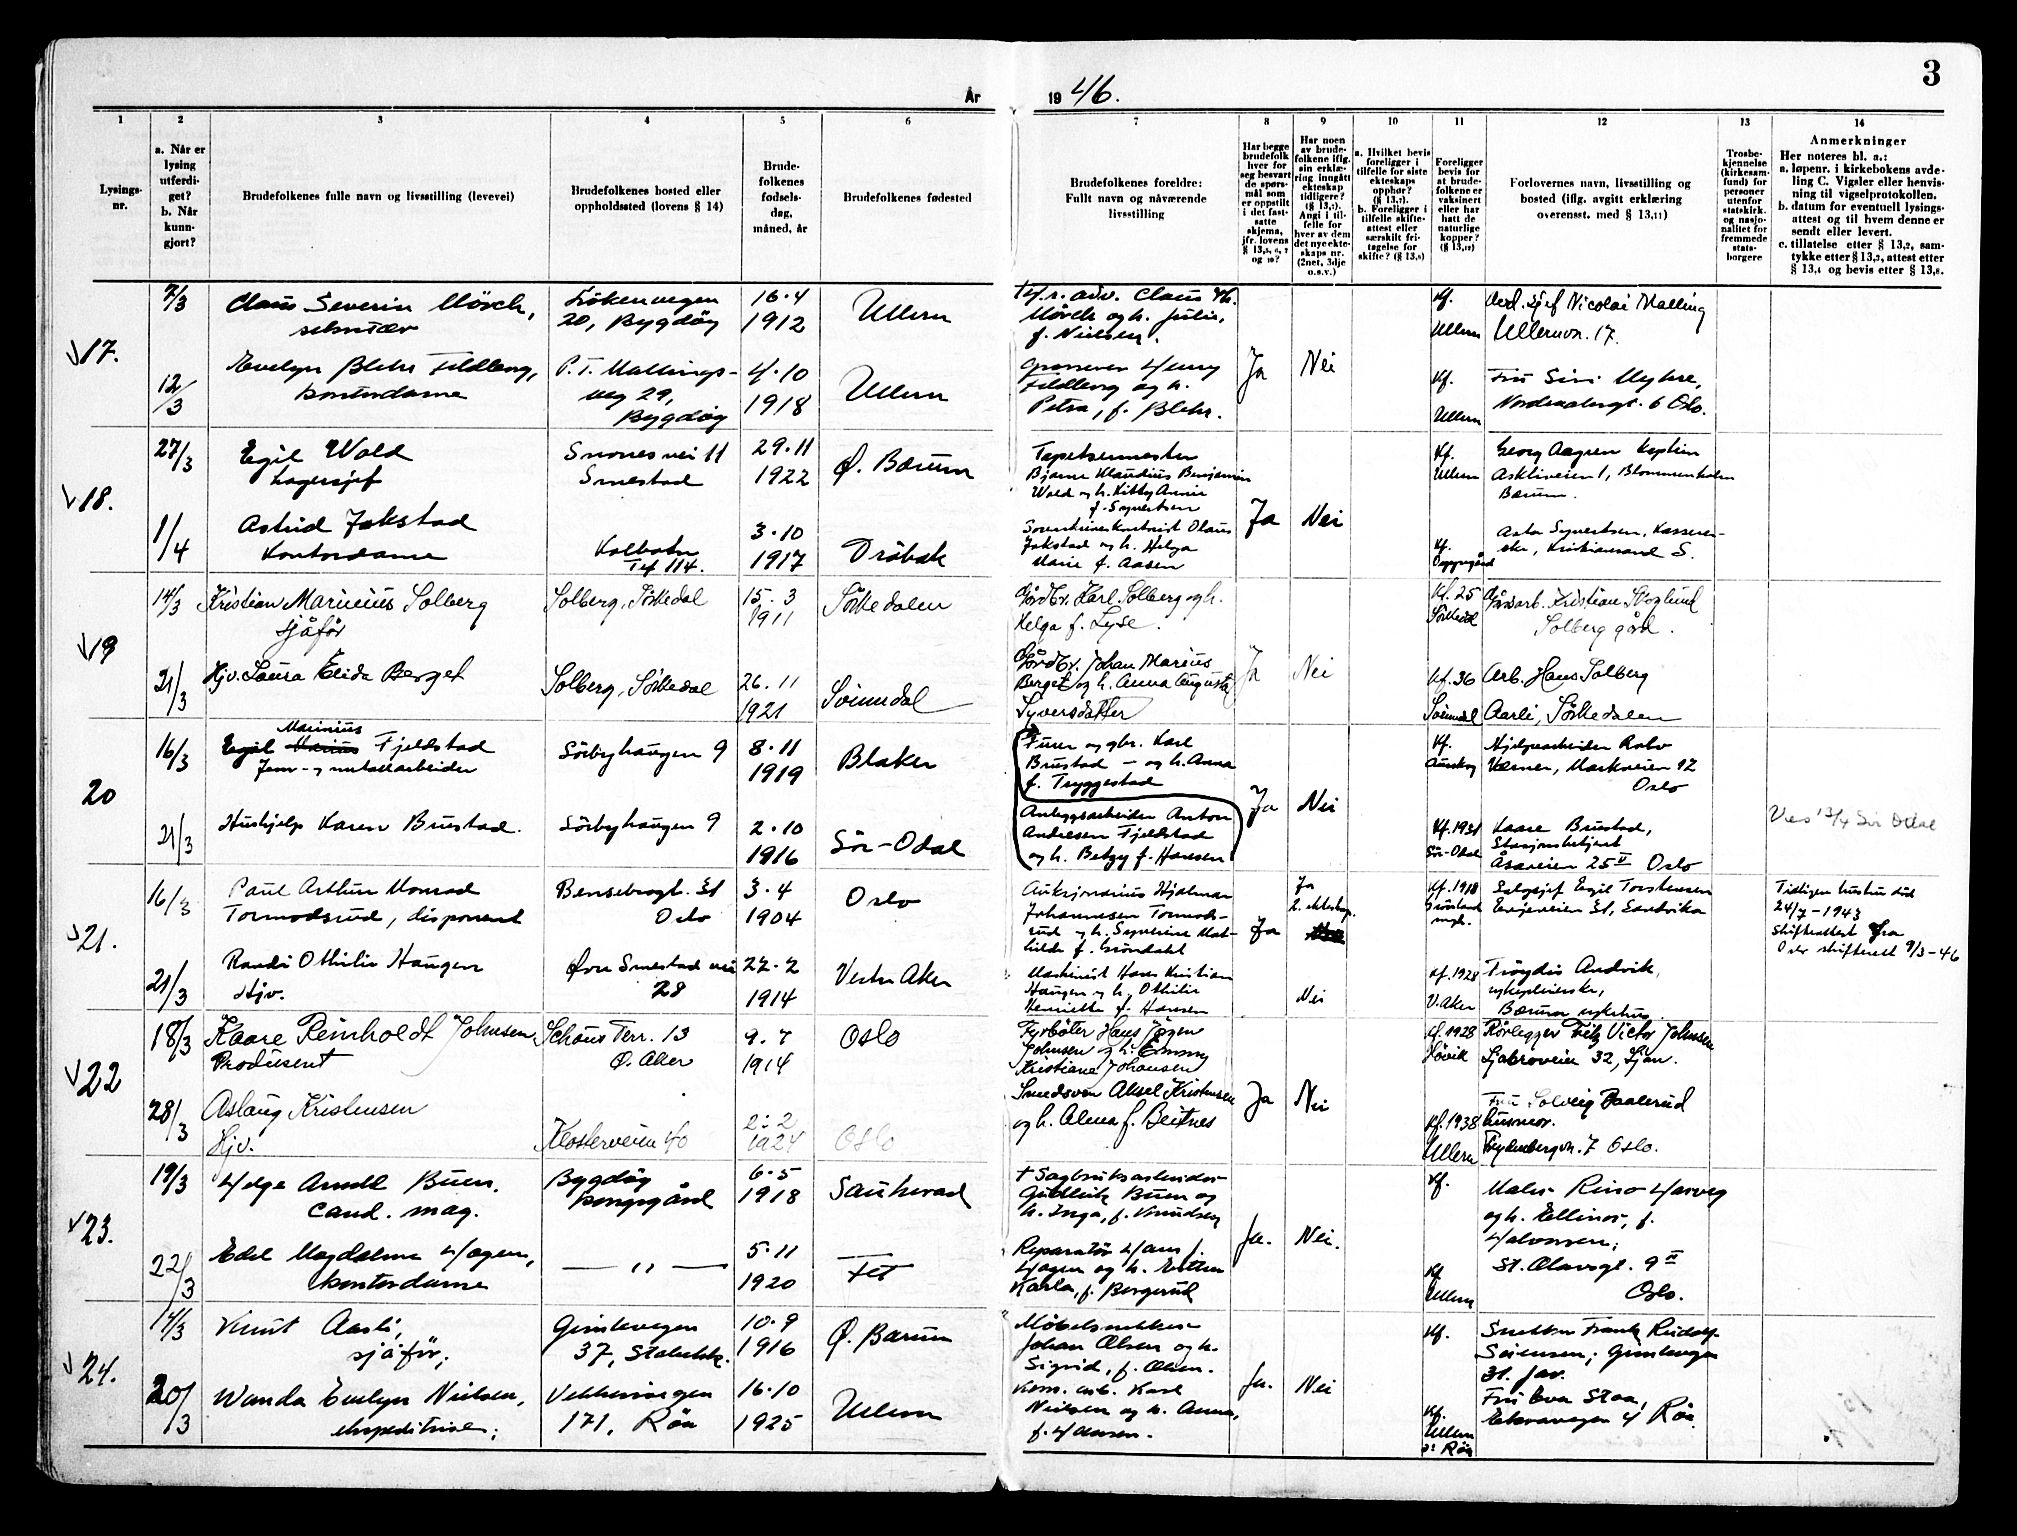 3
År
19 46.
1
2
3
4
5
6
7
8
9
10
11
12
13
14
Lysings-
nr.
a. Når er
lysing
utferdi-
get?
b. Når
kunn-
gjort?
Brudefolkenes fulle navn og livsstilling (levevei)
Brudefolkenes bosted eller
oppholdssted (lovens § 14)
Brude-
folkenes
fødsels-
dag,
måned, år
Brudefolkenes fødested
Brudefolkenes foreldre:
Fullt navn og nåværende
livsstilling
Har begge
brudefolk
hver for
seg besvart
de spørs-
mål som
er oppstilt
i det fast-
satte
skjema,
jfr. lovens
Har noen
av brude-
folkene iflg.
sin erklæ-
ring inngått
ekteskap
tidligere?
Angi i til-
felle for
hver av dem
det nye ekte-
skaps nr.
(2net, 3dje
o.s.v.)
a. Hvilket bevis
foreligger i
tilfelle for siste
ekteskaps
opphør?
b. Foreligger i
tilfelle skifte-
attest eller
særskilt fri-
tagelse for
Foreligger
bevis for
at brude-
folkene er
vaksinert
eller har
hatt de
naturlige
kopper?
Forlovernes navn, livsstilling og
bosted (iflg. avgitt erklæring
overensst. med § 13,11)
Trosbe-
kjennelse
(kirkesam-
fund) for
personer
utenfor
statskirk.
og nasjo-
nalitet for
fremmede
stats-
borgere
Anmerkninger
Her noteres bl. a.:
a. løpenr. i kirkebokens avde-
ling C. Vigsler eller henvis-
ning til vigselprotokollen.
b. datum for eventuell lysings-
attest og til hvem denne er
sendt eller levert.
c. tillatelse etter § 13,2, sam-
tykke etter § 13,3, attest etter
§ 13,4 og bevis etter § 13,8.
17.
7/3
Claus Severin Mörch,
20, Bygdöy
16.4
1912
Ullern
Mörch og h. Julie,
f. Nielsen.
Ja
Nei
Kf.
Ullern
Nicolai Malling
Ullernvn. 17.
12/3
Evelyn Blehr Feldberg,
kontordame
P.T. Mallings-
veg 29,
Bygdöy
4.10
1918
Ullern
Feldberg og h.
Petra, f. Blehr.
Kf.
Ullern
Fru Siri Myhre,
18.
27/3
Egil Wold
Lagersjef
Smestad
29.11
1922
Ö. Bærum
Tapetsermester
Bjarne Klaudius Benjamin
Wold og h. Kitty Annie
f. Syvertsen
Ja
Nei
Kf.
Ullern
Georg Aagren Kaptein
Askliveien 1, Blommenholm
Bærum.
1/4
Astrid Jakstad
Kontordame
Kolbotn
3.10
1917
Dröbak
Jakstad og h. Helga
Marie f. Aasen
Kf.
Kristiansand S.
19
14/3
Kristian Marinius Solberg
sjåför
Solberg, Sörkedal
15.3
1911
Sörkedalen
Gårdbr. Karl Solberg og h.
Helga f. Lyse.
Ja
Nei
Kf. 25
Sörkedal
Gårdsarb. Kristian Skoglund
Solberg gård.
21/3
Hjv. Laura Elida Berget
Solberg, Sörkedal
26.11
1921
Svinndal
Gårdbr. Johan Marius
Berget og h. Anna Augusta
Syversdatter
Kf. 36
Svinndal
Arb. Hans Solberg
Aarli, Sörkedalen
20
16/3
Marinius
Egil Marius Fjeldstad
Jern- og metallarbeider
Sörbyhaugen 9
8.11
1919
Blaker
Brustad — og h. Anna
f. Tryggestad
Ja
Nei
Kf.
Hjelpearbeider Rolv
Værner, Markveien 12
Oslo
21/3
Hushjelp Karen Brustad.
Sörbyhaugen 9
2.10
1916
Sör-Odal
Anleggsarbeider Anton
Andresen Fjeldstad
og h. Betzy f. Hansen
Kf. 1931
Sör-Odal
Kaare Brustad,
Stasjonsbetjent
Åsaveien 25 II Oslo
21.
16/3
Paul Arthur Monrad
Tormodsrud, disponent
Oslo
3.4
1904
Oslo
Auksjonarius Hjalmar
Johannesen Tormods-
rud og h. Syverine Mat-
hilde f. Gröndahl
Ja
Ja
2. ekteskap.
Kf. 1918
Salgssjef Egil Torstensen
Sandvika
Tidligere hustru död
24/7-1943
Skifteattest fra
Oslo skifterett 9/3-46
21/3
Randi Othilie Haugen
Hjv.
Övre Smestad vei
28
22.2
1914
Vestre Aker
Maskinist Hans Kristian
Haugen og h. Othilie
Henriette f. Hansen
Nei
Kf. 1928
V. Aker
Fröydis Andvik,
sykepleierske,
Bærum sykehus.
22
18/3
Kaare Reinholdt Johnsen
Produsent
Schous Terr. 13
Ö. Aker
9.7
1914
Oslo
Fyrböter Hans Jörgen
Johnsen og h. Emmy
Kristiane Johansen
Ja
Nei
Kf. 1928
Rörlegger Fritz Victor Johnsen
Ljabroveien 32, Ljan.
28/3
Aslaug Kristensen
Hjv.
Klosterveien 40
2.2
1924
Oslo
Smedsvn Aksel Kristensen
og h. Alma f. Beitnes
Kf. 1938
Ullern
Fru Solveig Baalerud
husmor.
7 Oslo.
23.
19/3
Helge Arndt Buen,
cand. mag.
Bygdöy
kongsgård
6.5
1918
Sauherad
† Sagbruksarbeider
Gudleik Buen og
h. Inga, f. Knudsen
Ja.
Nei.
Kf.
Maler Reino Harveg
og h. Ellinor, f.
Halvorsen,
St. Olavsgt. 9 II
Oslo.
22/3
Edel Magdalene Hagen,
kontordame
— " —
5.11
1920
Fet
Reparatör Hans J.
Hagen og h. Esther
Karla, f. Borgerud
Kf.
Ullern
24.
14/3
Knut Aasli,
sjåför;
Gimlevegen
37, Stabekk.
10.9
1916
Ö. Bærum
Möbelsnekker
Johan Olsen og h.
Sigrid, f. Olsen.
Ja.
Nei
Kf.
Snekker Frank Rudolf
Sörensen, Gimlevegen
20/3
Wanda Evelyn Nielsen,
ekspeditrise;
171, Röa
16.10
1925
Ullern
Karl
Nielsen og h. Anna,
f. Hansen.
Kf.
Ullern
Röa
Fru Eva Staa,
Röa